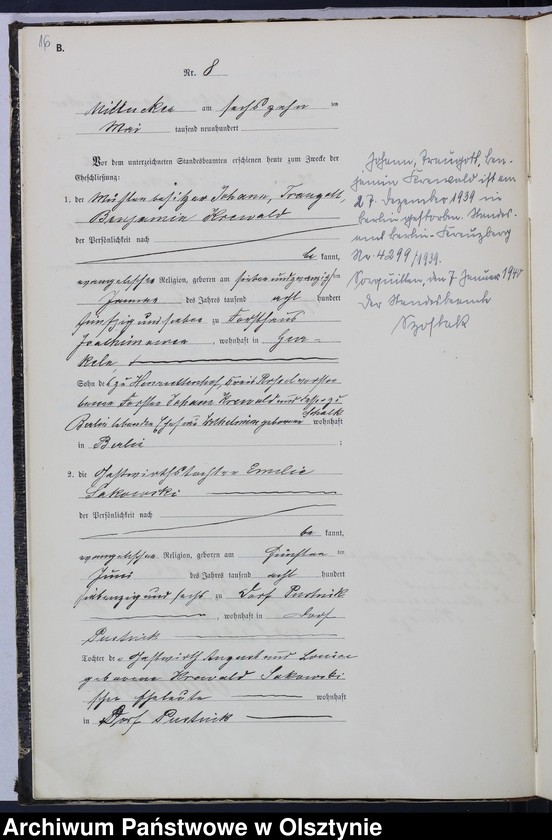 16
B.
Nr. 8
am sechszehn ten
Mai tausend neunhundert
Vor dem unterzeichneten Standesbeamten erschienen heute zum Zwecke der
Eheschließung:
1. der Mühlenbesitzer Johann, Traugott,
Benjamin Krewald
der Persönlichkeit nach
be kannt,
evangelischer Religion, geboren am siebenundzwanzigsten
Januar des Jahres tausend acht hundert
fünfzig und sieben zu Forsthaus
, wohnhaft in Gur-
keln,
Sohn des zu Henriettenhof, Kreis
Förster Johann Krewald und
Berlin lebenden Wilhelmine geborene Schalk wohnhaft
in Berlin
:
2. die Gastwirthstochter Emilie
Sakowski
der Persönlichkeit nach
be kannt,
evangelischer Religion, geboren am fünften ten
Juni des Jahres tausend acht hundert
siebenzig und sechs zu Dorf Pustnik
, wohnhaft in Dorf
Pustnik
Tochter der Gastwirth August und Louise
geborene Krewald Sakowski-
schen Eheleute wohnhaft
in Dorf Pustnik
Johann, Traugott, Ben-
jamin Krewald ist am
27. Dezember 1939 in
Berlin gestorben. Standes-
amt Berlin-Kreuzberg
Nr. 4299/1939.
Sorquitten, den 7. Januar 1940
Der Standesbeamte
Szostak
Archiwum Państwowe w Olsztynie